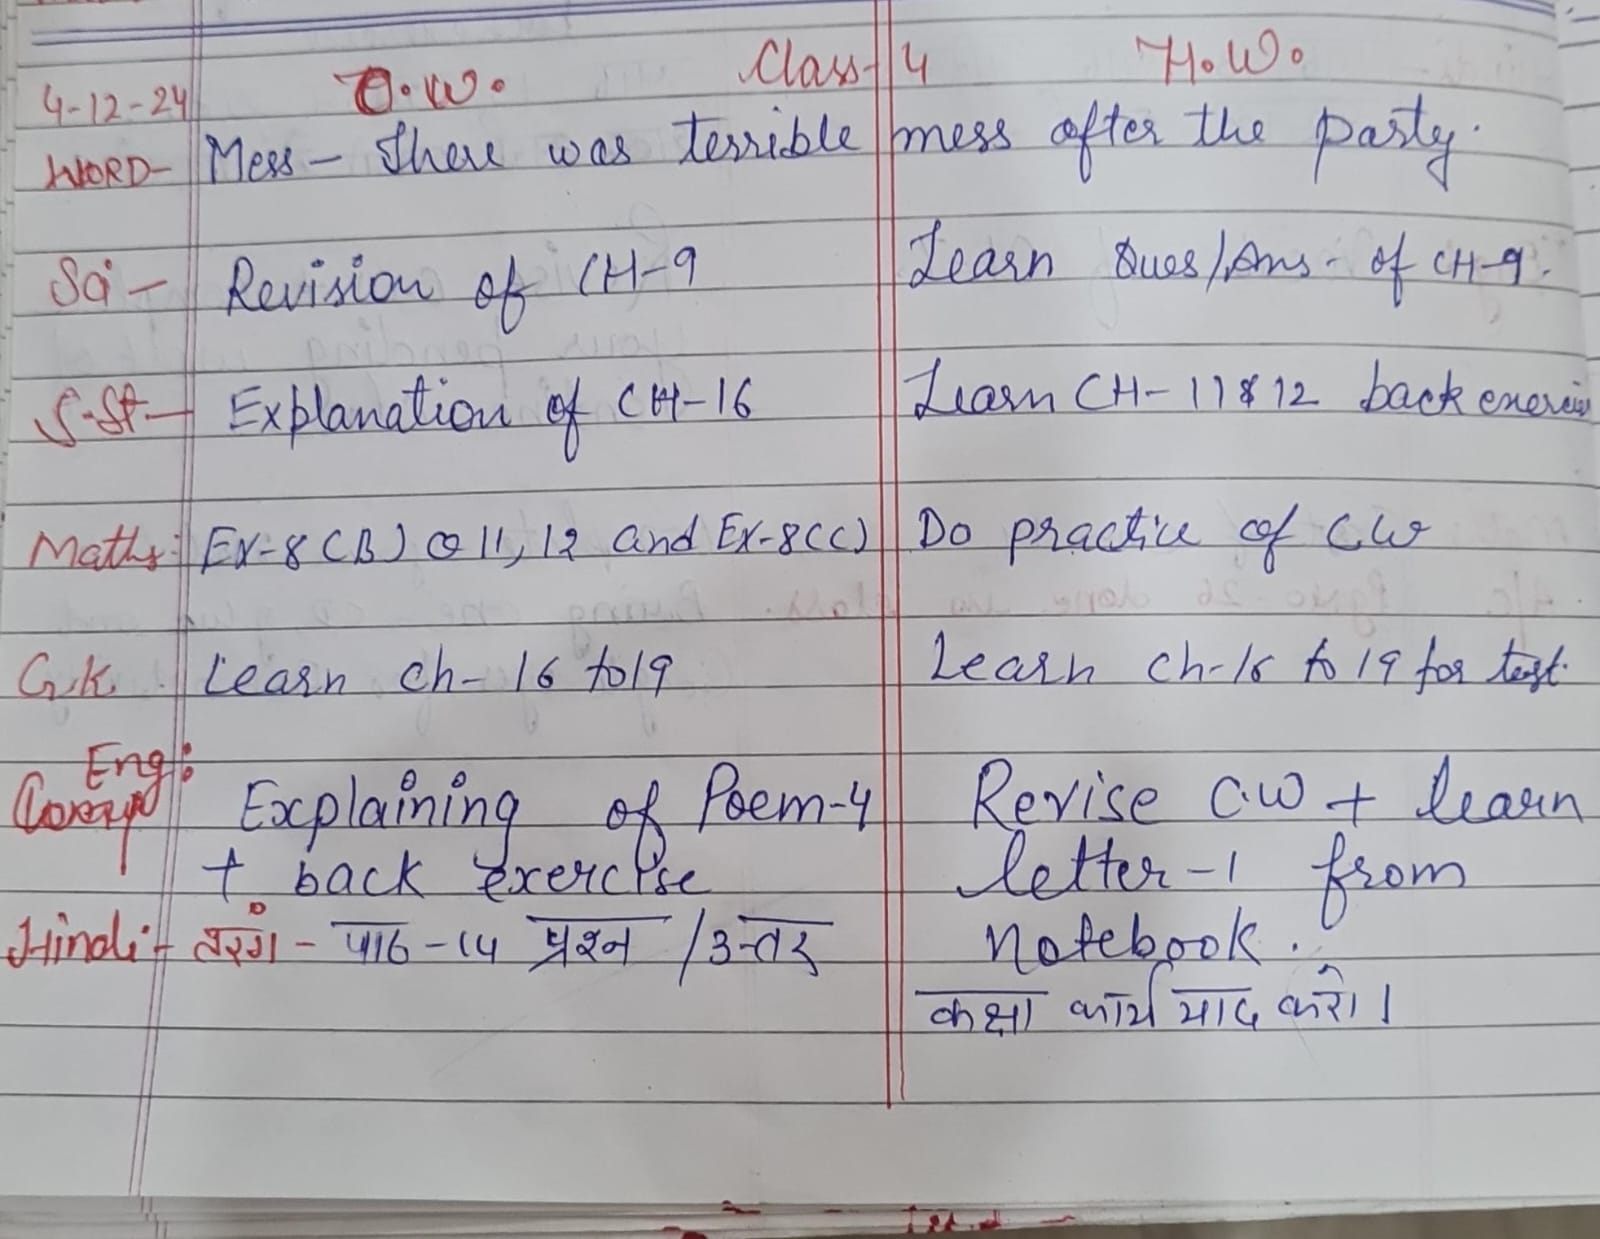 4-12-24 C.W. Class-4 H.W.
WORD- Mess - There was terrible mess after the party.
Sci - Revision of CH-9 Learn Ques/Ans. of CH-9.
S.St- Explanation of CH-16 Learn CH-11 & 12 back exercise
Maths: Ex-8(B) Q 11, 12 and Ex-8(C) Do practice of CW
G.K. Learn ch-16 to 19 Learn ch-16 to 19 for test.
Eng: Explaining of Poem-4 Revise C.W + learn
+ back exercise letter-1 from
Hindi:- तरंग - पाठ-14 प्रश्न /उत्तर notebook.
कक्षा कार्य याद करो।